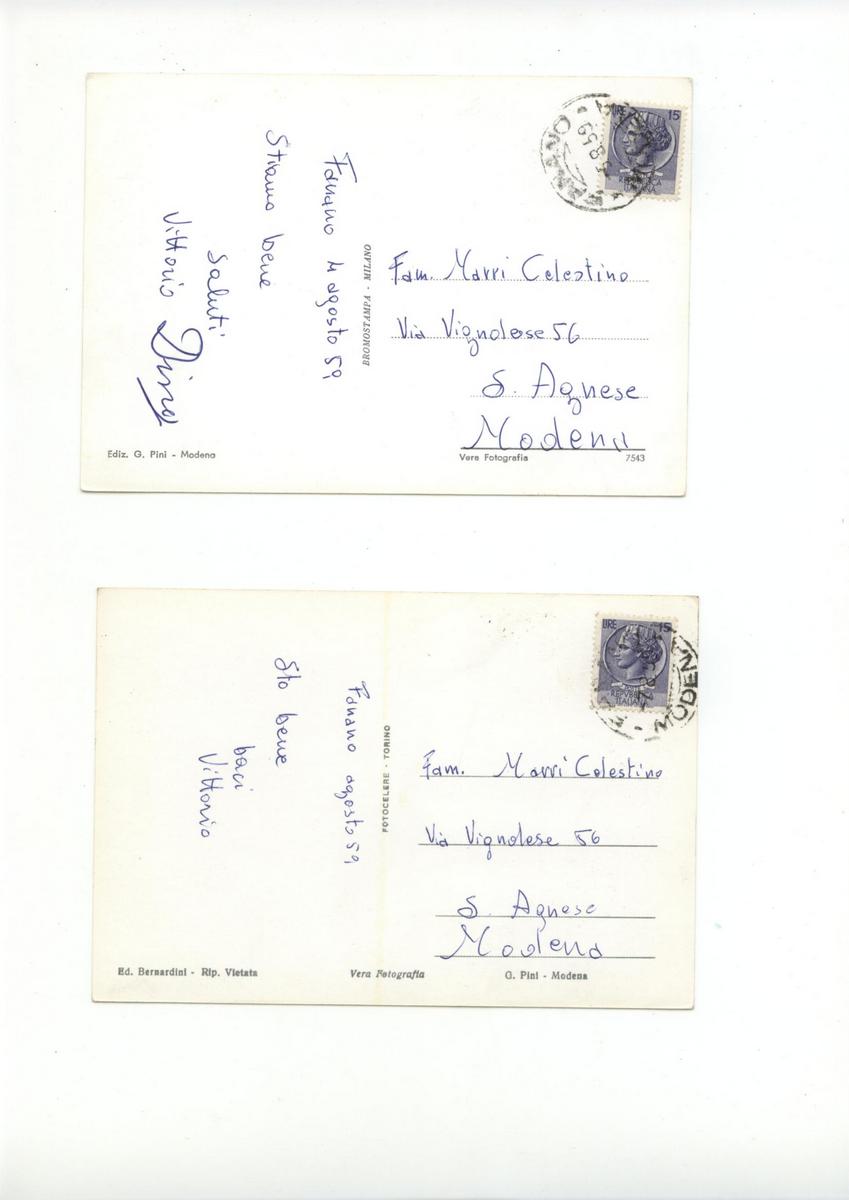 Fanano 4 agosto 59
Stiamo bene
Saluti
Vittorio Dina
BROMOSTAMPA - MILANO
LIRE 15
FANANO
5.8.59
Fam. Marri Celestino
Via Vignolese 56
S. Agnese
Modena
Ediz. G. Pini - Modena
Vera Fotografia
7543
Fanano agosto 59
Sto bene
baci
Vittorio
FOTOCELERE - TORINO
LIRE 15
REPVBBLICA
ITALIANA
MODEN
Fam. Marri Celestino
Via Vignolese 56
S. Agnese
Modena
Ed. Bernardini - Rip. Vietata
Vera Fotografia
G. Pini - Modena